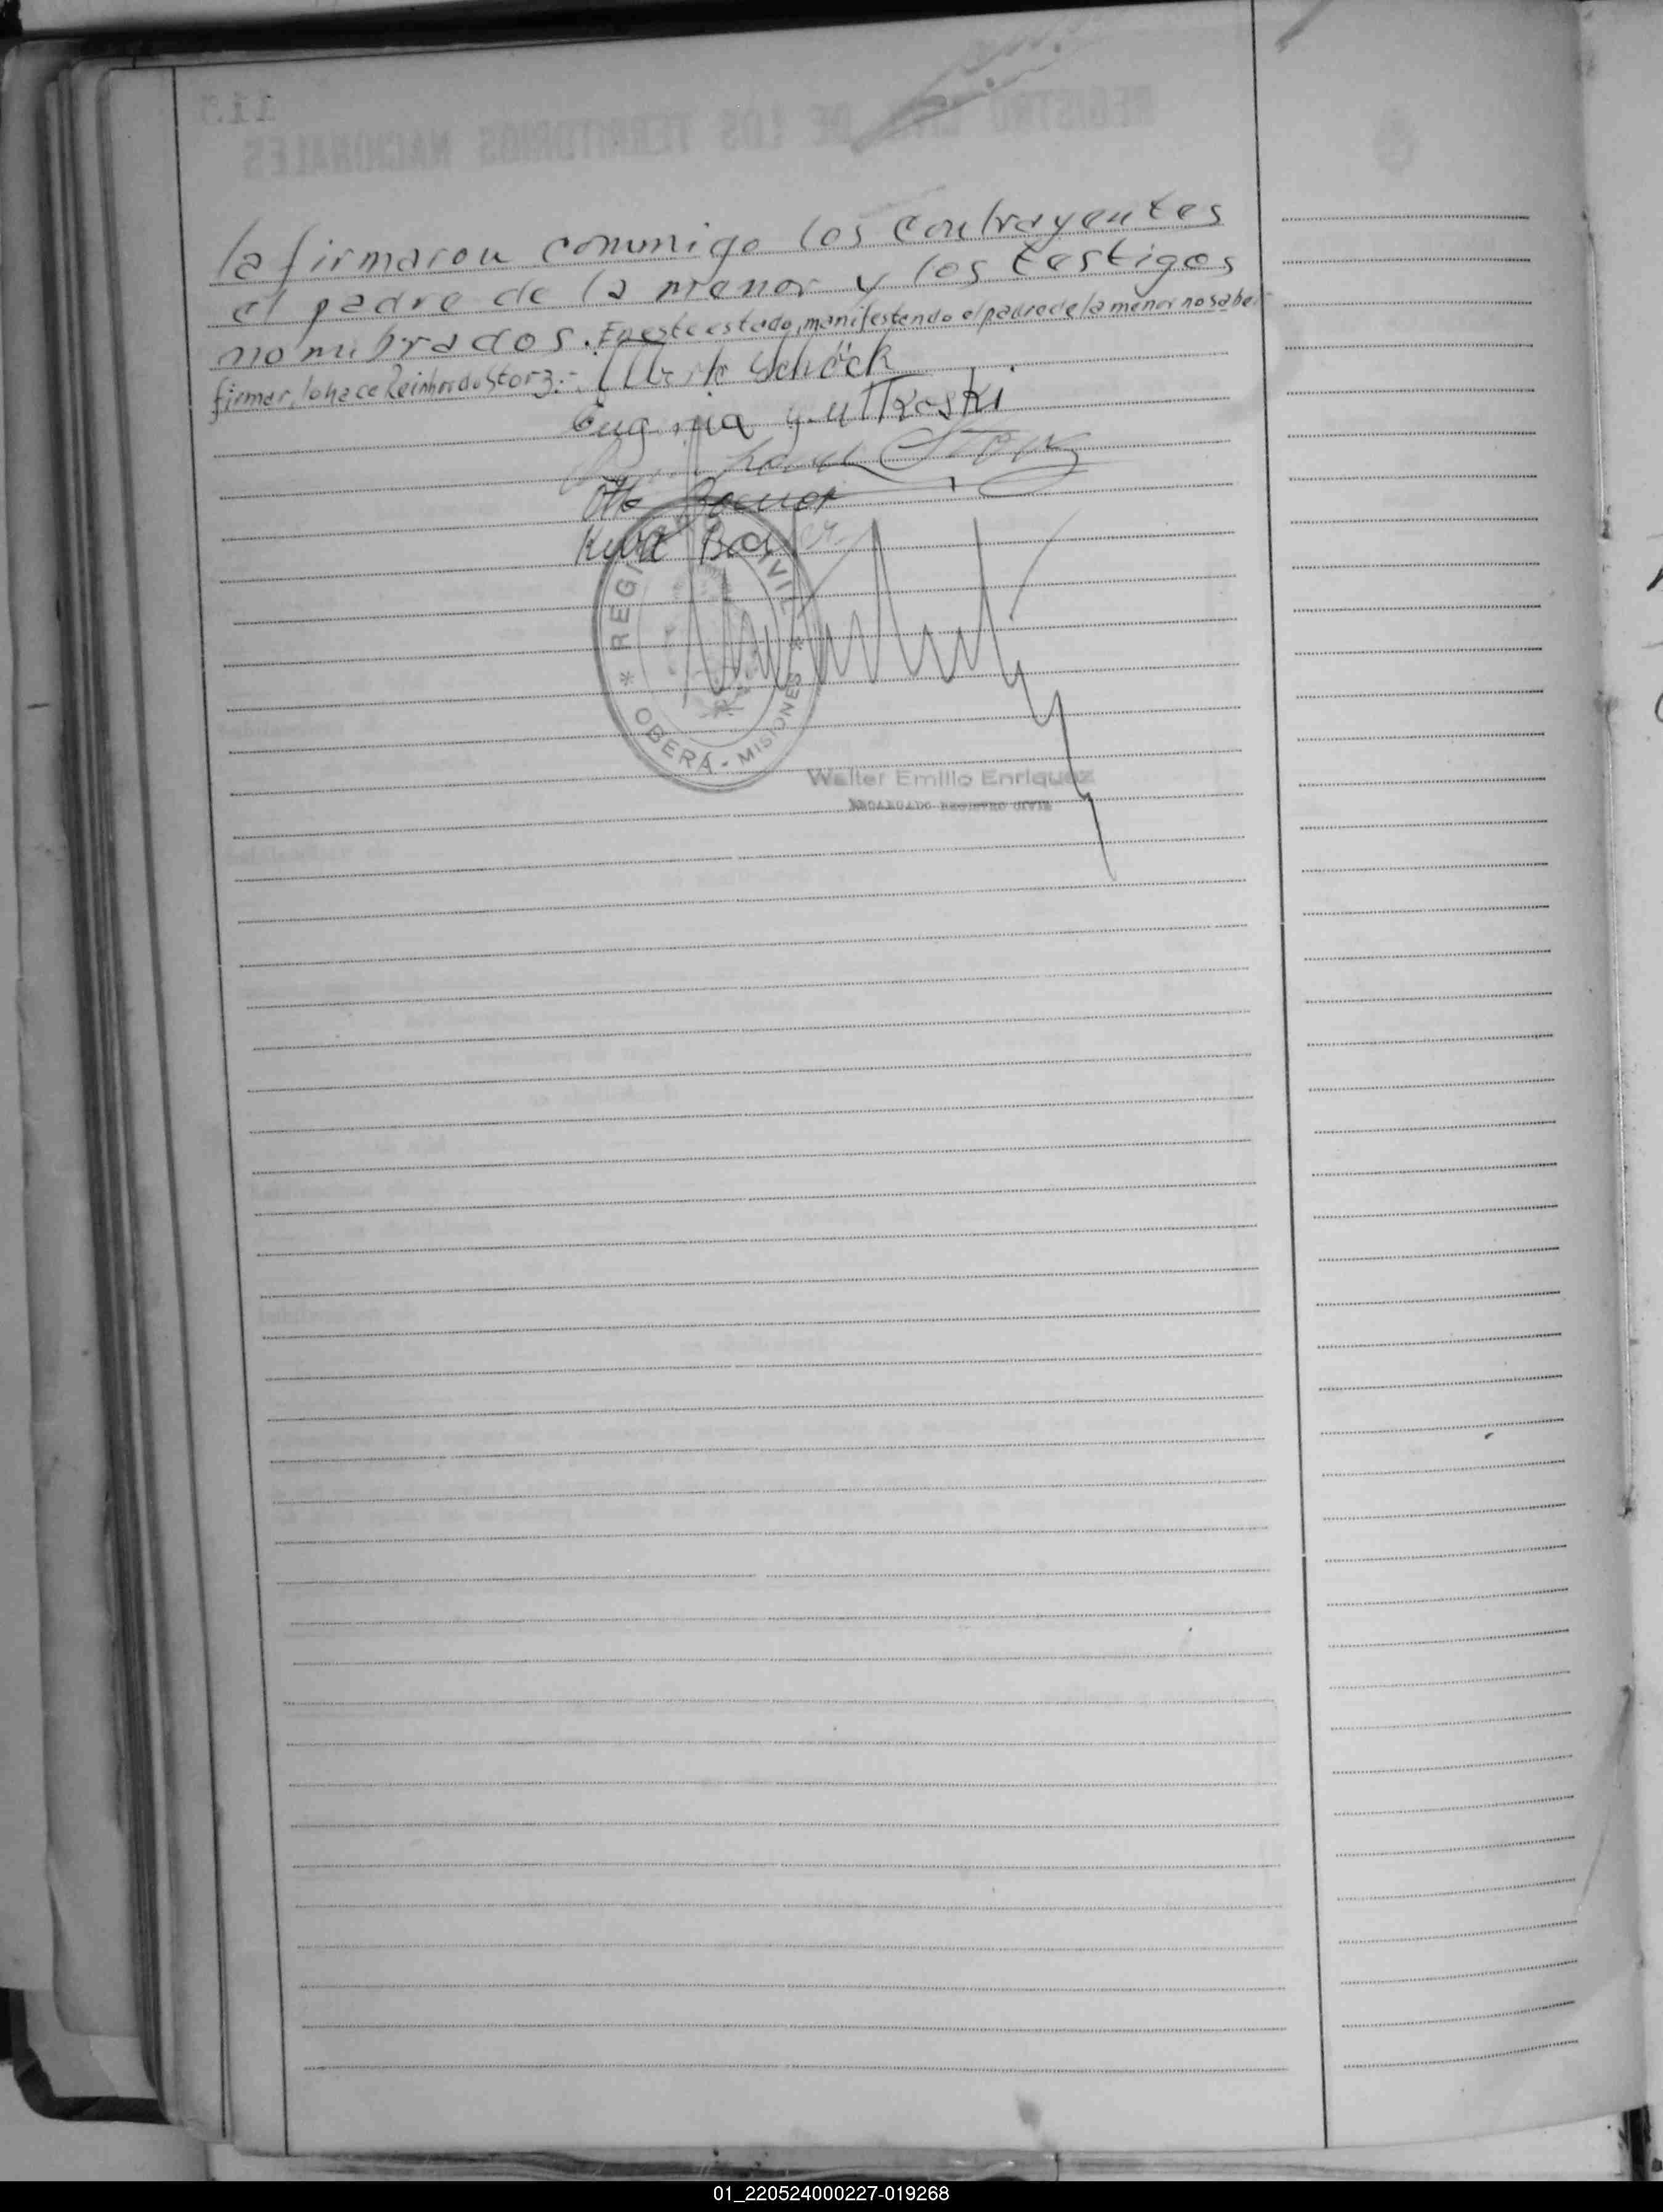 la firmaron conmigo los contrayentes
el padre de la menor y los testigos
nombrados. En este estado, manifestando el padre de la menor no saber
firmar, lo hace Reinhardo Storz.-
Alberto Schöck
Eugenia Gutkoski
Otto
Kurt
REGI CIVIL
* OBERÁ - MISIONES *
Walter Emilio Enriquez
ENCARGADO REGISTRO CIVIL
REGISTRO CIVIL DE LOS TERRITORIOS NACIONALES
01_220524000227-019268